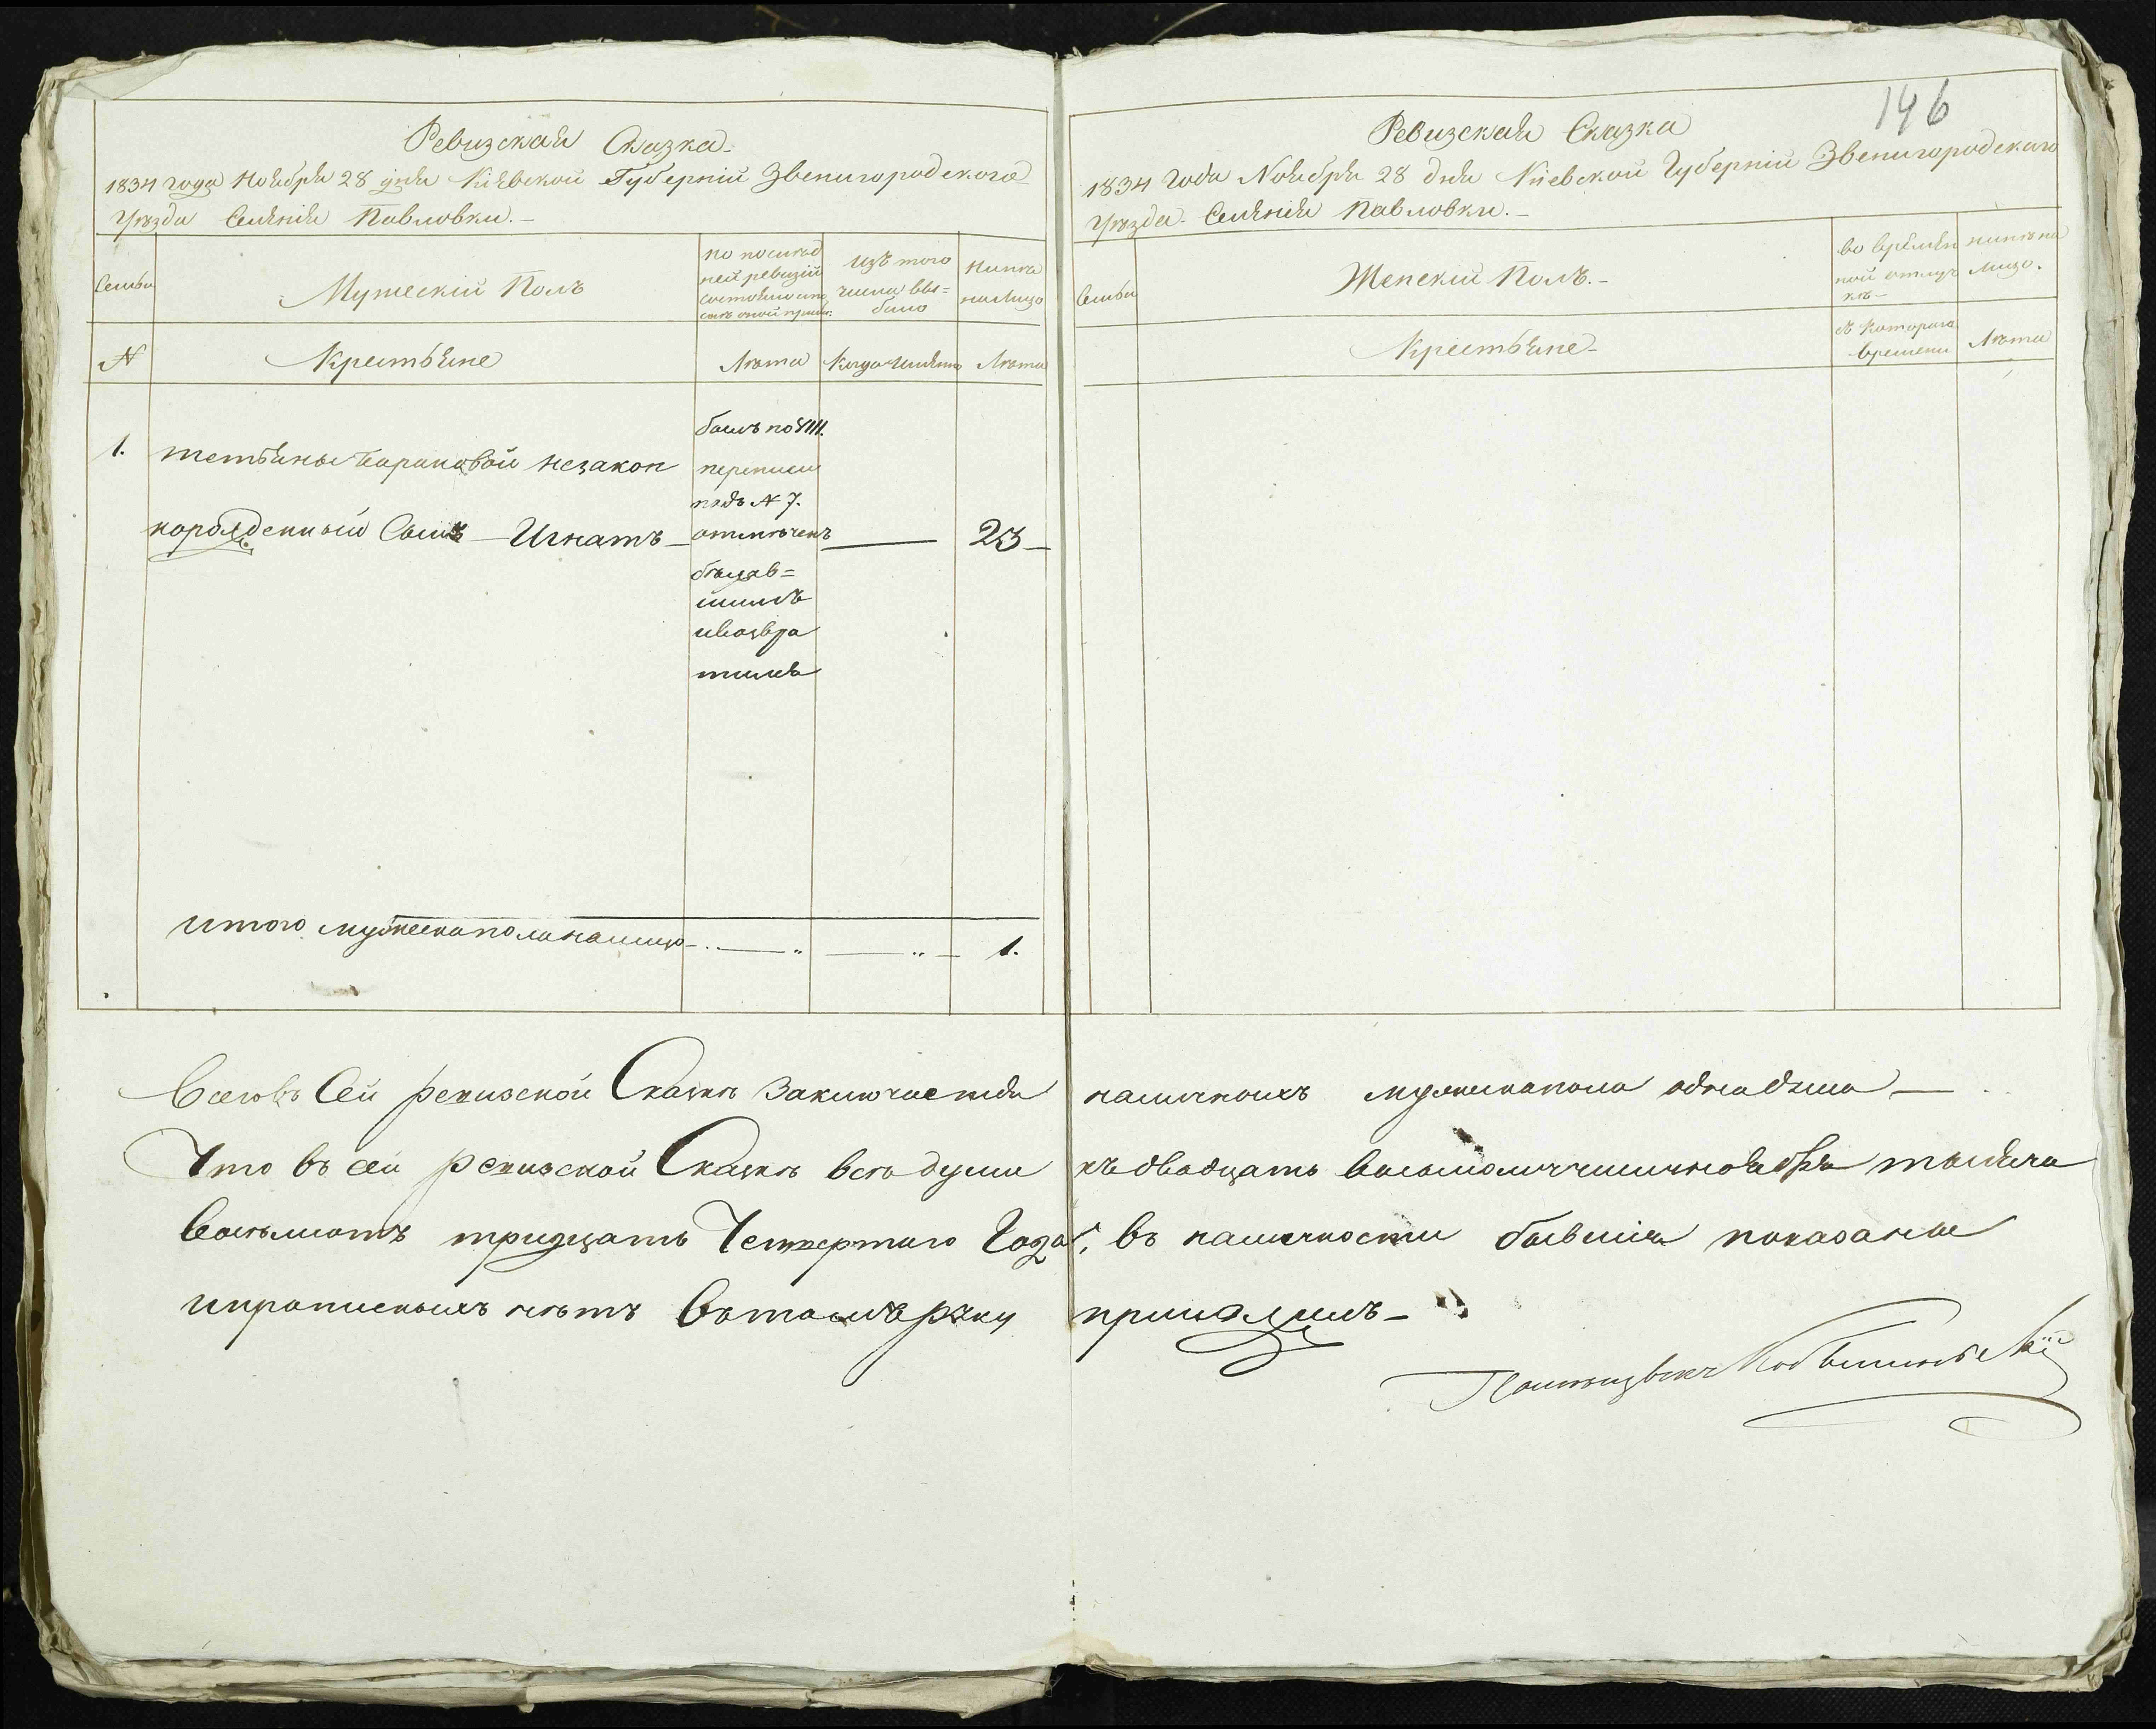 Ревизская Сказка.
1834 года Ноября 28 дня Кіевской Губерніи Звенигородского
Уезда Селенія Павловки.
Семьи
Мужескій Полъ
по послед
ней ревизіи
состояло и по
слѣ оной приб:
изъ того
числа вы=
было
Нынѣ
на лицо
№
Крестьяне
Лѣта
Когда именно
Лѣта
1.
Тетьяны незакон
норожденный Сынъ Игнатъ
былъ по VIII.
переписи
подъ № 7.
отмѣченъ
бѣжав=
шимъ
ивозвра
тился
23
итого мужеска пола налицо
1.
146
Ревизская Сказка
1834 Года Ноября 28 дня Кіевской Губерніи Звенигородскаго
Уѣзда. Селенія Павловки.
Семьи
Женскій Полъ.
во времен
ной отлуч
кѣ
нынѣ на
лицо.
Крестьяне
съ котораго
времени
Лѣта
Всего въ Сей ревизской Сказкѣ Заключается наличныхъ мужеска пола одна душа
Что въ сей ревизской Сказкѣ всѣ души къ двадцать восьмому числу ноября тысяча
восемьсотъ тридцать Четвертаго Года, въ наличности бывшія показаны
ипрописныхъ нѣтъ Вътомъ руку приложилъ